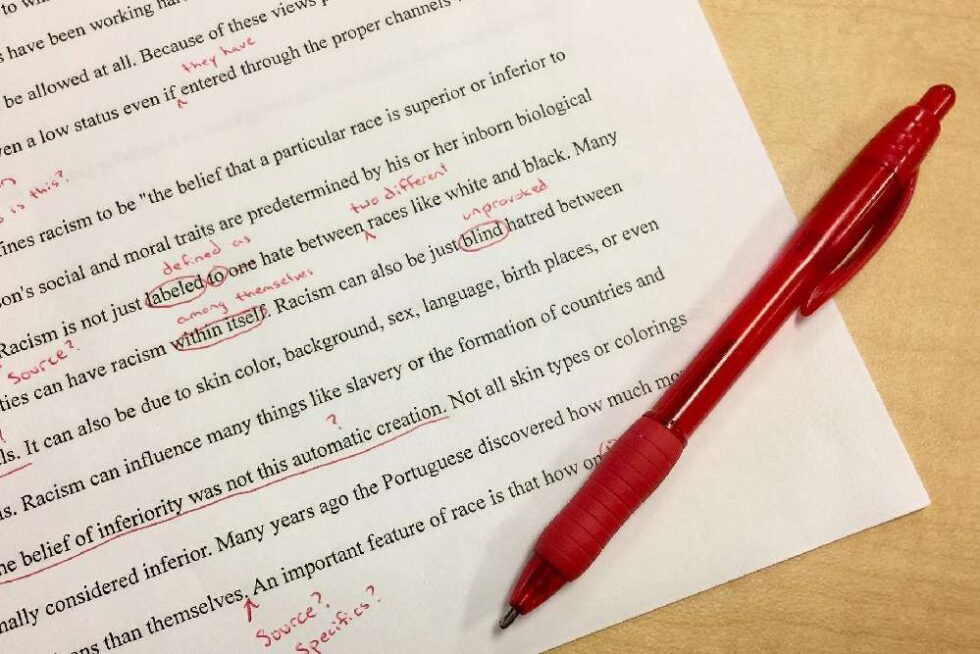 have been working
be allowed at all. Because of these views
they have
a low status even if ^ entered through the proper channels
is this?
racism to be "the belief that a particular race is superior or inferior to
social and moral traits are predetermined by his or her inborn biological
two different
unprovoked
defined as
Racism is not just labeled to one hate between ^ races like white and black. Many
among themselves
Source?
can have racism within itself. Racism can also be just blind hatred between
It can also be due to skin color, background, sex, language, birth places, or even
Racism can influence many things like slavery or the formation of countries and
?
belief of inferiority was not this automatic creation. Not all skin types or colorings
considered inferior. Many years ago the Portuguese discovered how much
than themselves. ^ An important feature of race is that how
Source?
Specifics?